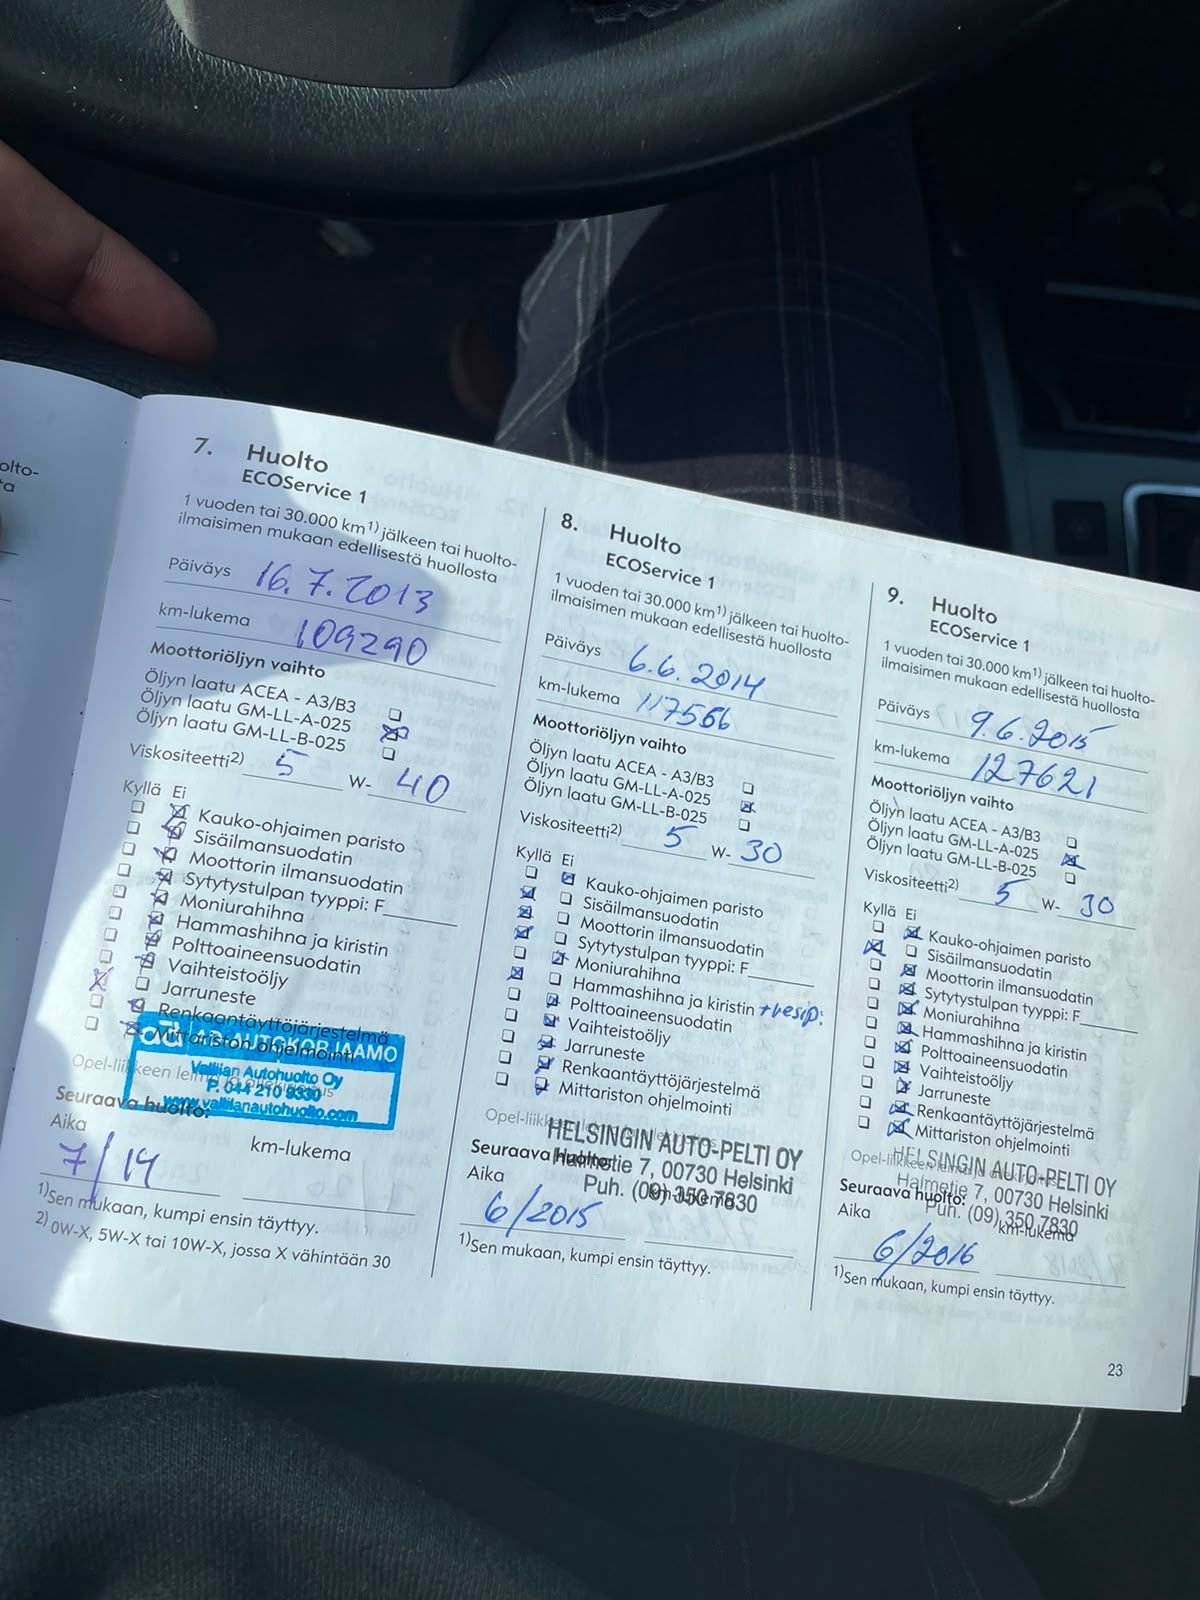 olto-
ta
7. Huolto
ECOService 1
1 vuoden tai 30.000 km1) jälkeen tai huolto-
ilmaisimen mukaan edellisestä huollosta
Päiväys 16.7.2013
km-lukema 109290
Moottoriöljyn vaihto
Öljyn laatu ACEA - A3/B3
Öljyn laatu GM-LL-A-025
Öljyn laatu GM-LL-B-025
Viskositeetti2) 5 W- 40
Kyllä Ei
Kauko-ohjaimen paristo
Sisäilmansuodatin
Moottorin ilmansuodatin
Sytytystulpan tyyppi: F
Moniurahihna
Hammashihna ja kiristin
Polttoaineensuodatin
Vaihteistoöljy
Jarruneste
Renkaantäyttöjärjestelmä
Mittariston ohjelmointi
ad AD AUTOKORJAAMO
Vallilan Autohuolto Oy
P. 044 210 9330
www.vallilanautohuolto.com
Opel-liikkeen leima ja allekirjoitus
Seuraava huolto:
Aika km-lukema
7/14
1)Sen mukaan, kumpi ensin täyttyy.
2) 0W-X, 5W-X tai 10W-X, jossa X vähintään 30
8. Huolto
ECOService 1
1 vuoden tai 30.000 km1) jälkeen tai huolto-
ilmaisimen mukaan edellisestä huollosta
Päiväys 6.6.2014
km-lukema 117566
Moottoriöljyn vaihto
Öljyn laatu ACEA - A3/B3
Öljyn laatu GM-LL-A-025
Öljyn laatu GM-LL-B-025
Viskositeetti2) 5 W- 30
Kyllä Ei
Kauko-ohjaimen paristo
Sisäilmansuodatin
Moottorin ilmansuodatin
Sytytystulpan tyyppi: F
Moniurahihna
Hammashihna ja kiristin +vesip:
Polttoaineensuodatin
Vaihteistoöljy
Jarruneste
Renkaantäyttöjärjestelmä
Mittariston ohjelmointi
HELSINGIN AUTO-PELTI OY
Halmetie 7, 00730 Helsinki
Puh. (09) 350 7830
Seuraava huolto:
Aika km-lukema
6/2015
1)Sen mukaan, kumpi ensin täyttyy.
9. Huolto
ECOService 1
1 vuoden tai 30.000 km1) jälkeen tai huolto-
ilmaisimen mukaan edellisestä huollosta
Päiväys 9.6.2015
km-lukema 127621
Moottoriöljyn vaihto
Öljyn laatu ACEA - A3/B3
Öljyn laatu GM-LL-A-025
Öljyn laatu GM-LL-B-025
Viskositeetti2) 5 W- 30
Kyllä Ei
Kauko-ohjaimen paristo
Sisäilmansuodatin
Moottorin ilmansuodatin
Sytytystulpan tyyppi: F
Moniurahihna
Hammashihna ja kiristin
Polttoaineensuodatin
Vaihteistoöljy
Jarruneste
Renkaantäyttöjärjestelmä
Mittariston ohjelmointi
Opel-liikkeen leima ja allekirjoitus
HELSINGIN AUTO-PELTI OY
Halmetie 7, 00730 Helsinki
Puh. (09) 350 7830
Seuraava huolto:
Aika km-lukema
6/2016
1)Sen mukaan, kumpi ensin täyttyy.
23